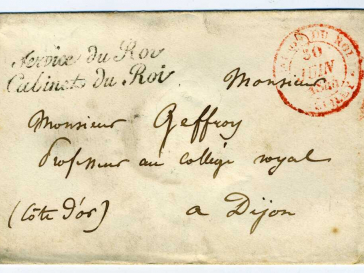 Service du Roi
Cabinet du Roi
Monsieur
Monsieur Geffroy
Professeur au collège royal
(Côte d'or) a Dijon
DU ROI
20
JUIN